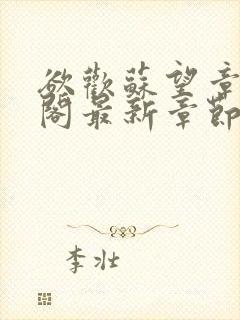 欲歡蘇望章
閣最新章節
李壯